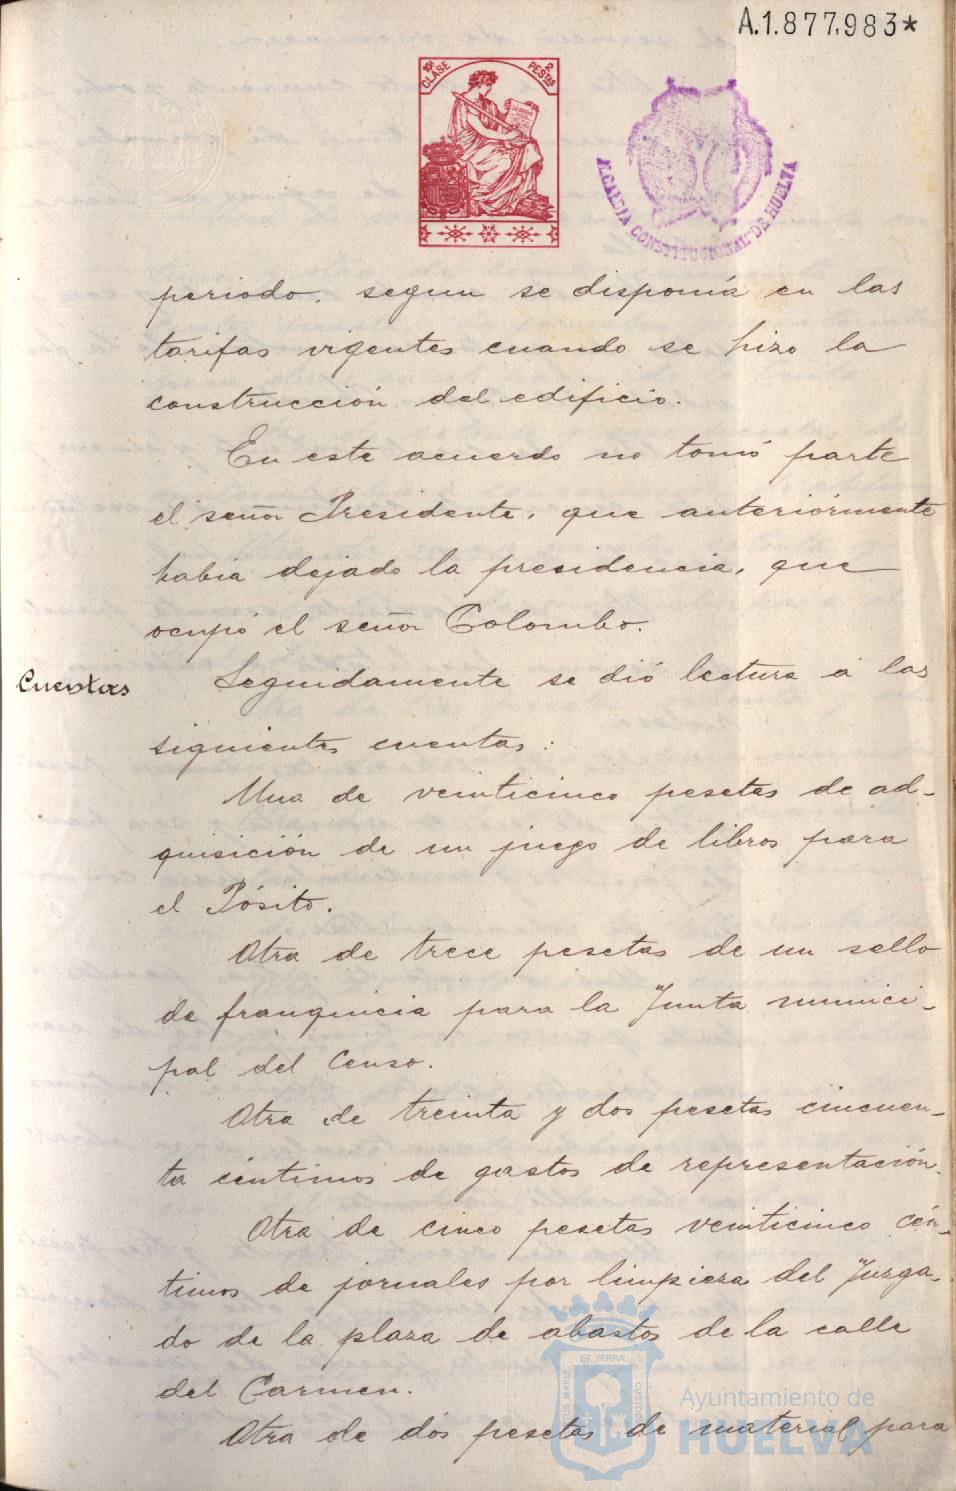 A.1.877.983*
10ª CLASE
2 PESTAS
ALCALDIA CONSTITUCIONAL DE HUELVA
periodo, segun se disponiá en las
tarifas vigentes cuando se hizo la
construcción del edificio.
En este acuerdo no tomó parte
el señor Presidente, que anteriórmente
habia dejado la presidencia, que
ocupó el señor Colombo.
Cuentas
Seguidamente se dió lectura á las
siguientes cuentas:
Una de veinticinco pesetas de ad-
quisición de un juego de libros para
el Pósito.
Otra de trece pesetas de un sello
de franquicia para la Junta munici-
pal del Censo.
Otra de treinta y dos pesetas cincuen-
ta céntimos de gastos de representación.
Otra de cinco pesetas veinticinco cén-
timos de jornales por limpieza del Juzga-
do de la plaza de abastos de la calle
del Carmen.
Otra de dos pesetas de material para
ET TERRÆ
MARIS
CUSTODIA
Ayuntamiento de
HUELVA